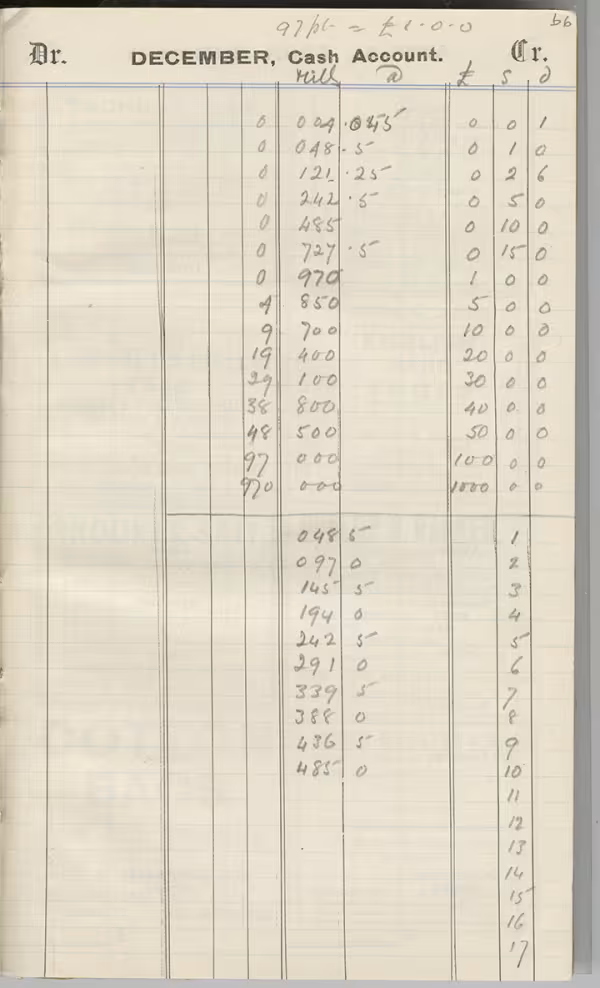 97 pt = £1.0.0
66
Dr. DECEMBER, Cash Account. Cr.
Mill £ s d
0 004 .045 0 0 1
0 048 .5 0 1 0
0 121 .25 0 2 6
0 242 .5 0 5 0
0 485 0 10 0
0 727 .5 0 15 0
0 970 1 0 0
4 850 5 0 0
9 700 10 0 0
19 400 20 0 0
29 100 30 0 0
38 800 40 0 0
48 500 50 0 0
97 000 100 0 0
970 000 1000 0 0
048 5 1
097 0 2
145 5 3
194 0 4
242 5 5
291 0 6
339 5 7
388 0 8
436 5 9
485 0 10
11
12
13
14
15
16
17